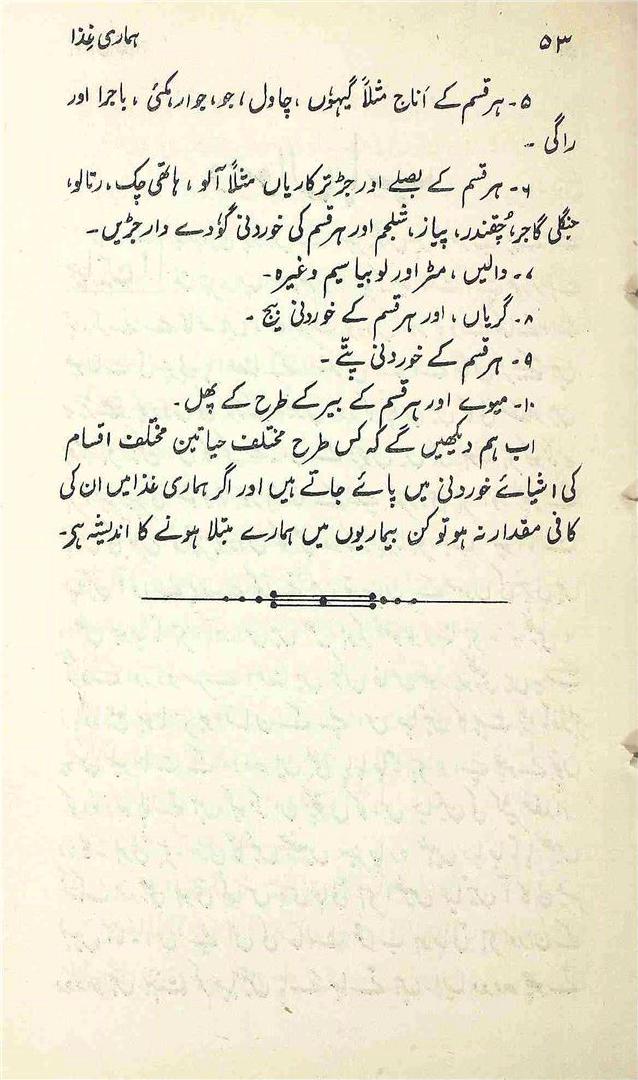 ۵۳
ہماری غذا
۵۔ ہر قسم کے اناج مثلاً گیہوں، چاول، جو، جوار، مکئی، باجرا اور
راگی ۔
۶۔ ہر قسم کے بصلے اور جڑ ترکاریاں مثلاً آلو، ہاتھی چک، رتالو،
جنگلی گاجر، چُقندر، پیاز، شلجم اور ہر قسم کی خوردنی گودے دار جڑیں۔
۷۔ دالیں، مٹر اور لوبیا سیم وغیرہ۔
۸۔ گریاں، اور ہر قسم کے خوردنی بیج ۔
۹۔ ہر قسم کے خوردنی پتّے ۔
۱۰۔ میوے اور ہر قسم کے بیر کے طرح کے پھل۔
اب ہم دیکھیں گے کہ کس طرح مختلف حیاتین مختلف اقسام
کی اشیائے خوردنی میں پائے جاتے ہیں اور اگر ہماری غذا میں ان کی
کافی مقدار نہ ہو تو کن بیماریوں میں ہمارے مبتلا ہونے کا اندیشہ ہے۔